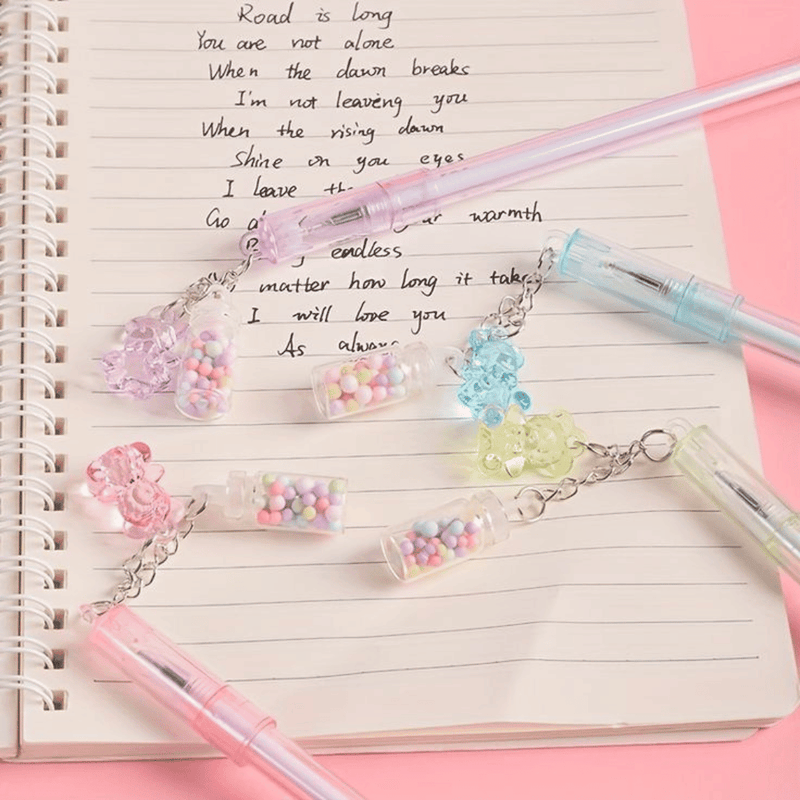 Road is long
You are not alone
When the dawn breaks
I'm not leaving you
When the rising dawn
Shine on you eyes
I leave
Go warmth
endless
matter how long it take
I will love you
As always